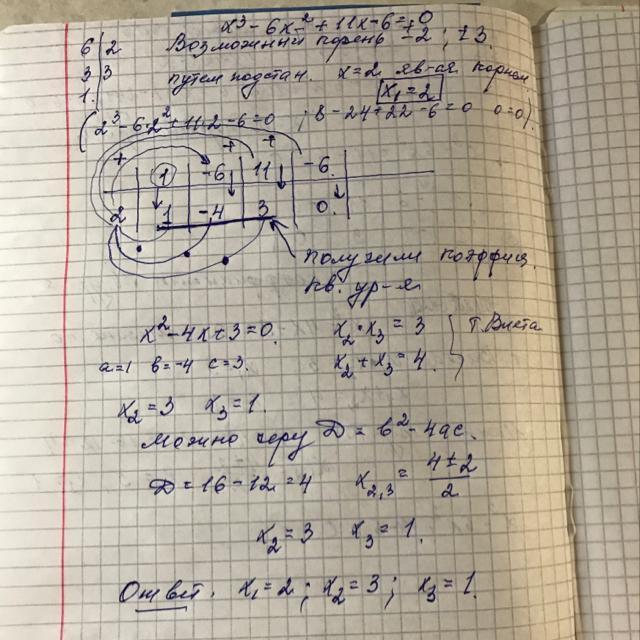 x³ - 6x² + 11x - 6 = 0
6 | 2 Возможный корень ±2 ; ±3.
3 | 3 путем подстан. x = 2 яв-ся корнем
1. x₁ = 2
(2³ - 6·2² + 11·2 - 6 = 0 ; 8 - 24 + 22 - 6 = 0 0 = 0).
+ + +
1 -6 11 -6.
2 1 -4 3 0.
получили коэффиц.
кв. ур-я
x² - 4x + 3 = 0. x₂ · x₃ = 3 Т. Виета
a = 1 b = -4 c = 3. x₂ + x₃ = 4.
x₂ = 3 x₃ = 1.
Можно через D = b² - 4ac.
D = 16 - 12 = 4 x₂,₃ = (4 ± 2)/2
x₂ = 3 x₃ = 1.
Ответ. x₁ = 2 ; x₂ = 3 ; x₃ = 1.